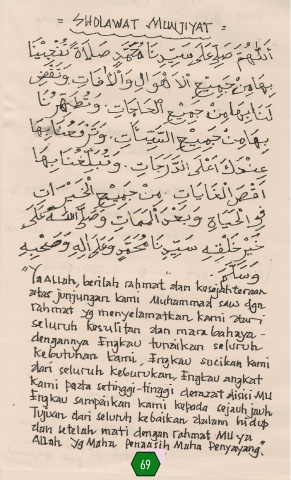 = SHOLAWAT MUNJIYAT =
اَللّٰهُمَّ صَلِّ عَلَى سَيِّدِنَا مُحَمَّدٍ صَلَاةً تُنْجِيْنَا
بِهَا مِنْ جَمِيْعِ الْاَهْوَالِ وَالْاٰفَاتِ وَتَقْضِى
لَنَا بِهَا مِنْ جَمِيْعِ الْحَاجَاتِ وَتُطَهِّرُنَا
بِهَا مِنْ جَمِيْعِ السَّيِّئَاتِ وَتَرْفَعُنَا بِهَا
عِنْدَكَ اَعْلَى الدَّرَجَاتِ وَتُبَلِّغُنَا بِهَا
اَقْصَ الْغَايَاتِ مِنْ جَمِيْعِ الْخَيْرَاتِ
فِى الْحَيَاةِ وَبَعْدَ الْمَمَاتِ وَصَلَّى اللهُ عَلَى
خَيْرِ خَلْقِهِ سَيِّدِنَا مُحَمَّدٍ وَعَلَى اٰلِهِ وَصَحْبِهِ
وَسَلَّمَ
"Ya Allah, berilah rahmat dan kesejahteraan
atas junjungan kami Muhammad saw dgn
rahmat yg menyelamatkan kami dari
seluruh kesulitan dan mara bahaya
dengannya Engkau tunaikan seluruh
kebutuhan kami, Engkau sucikan kami
dari seluruh keburukan, Engkau angkat
kami pada setinggi-tinggi derazat disisi MU
Engkau sampaikan kami kepada sejauh jauh
Tujuan dari seluruh kebaikan dalam hidup
dan setelah mati dengan rahmat MU ya
Allah yg Maha Pengasih Maha Penyayang."
69